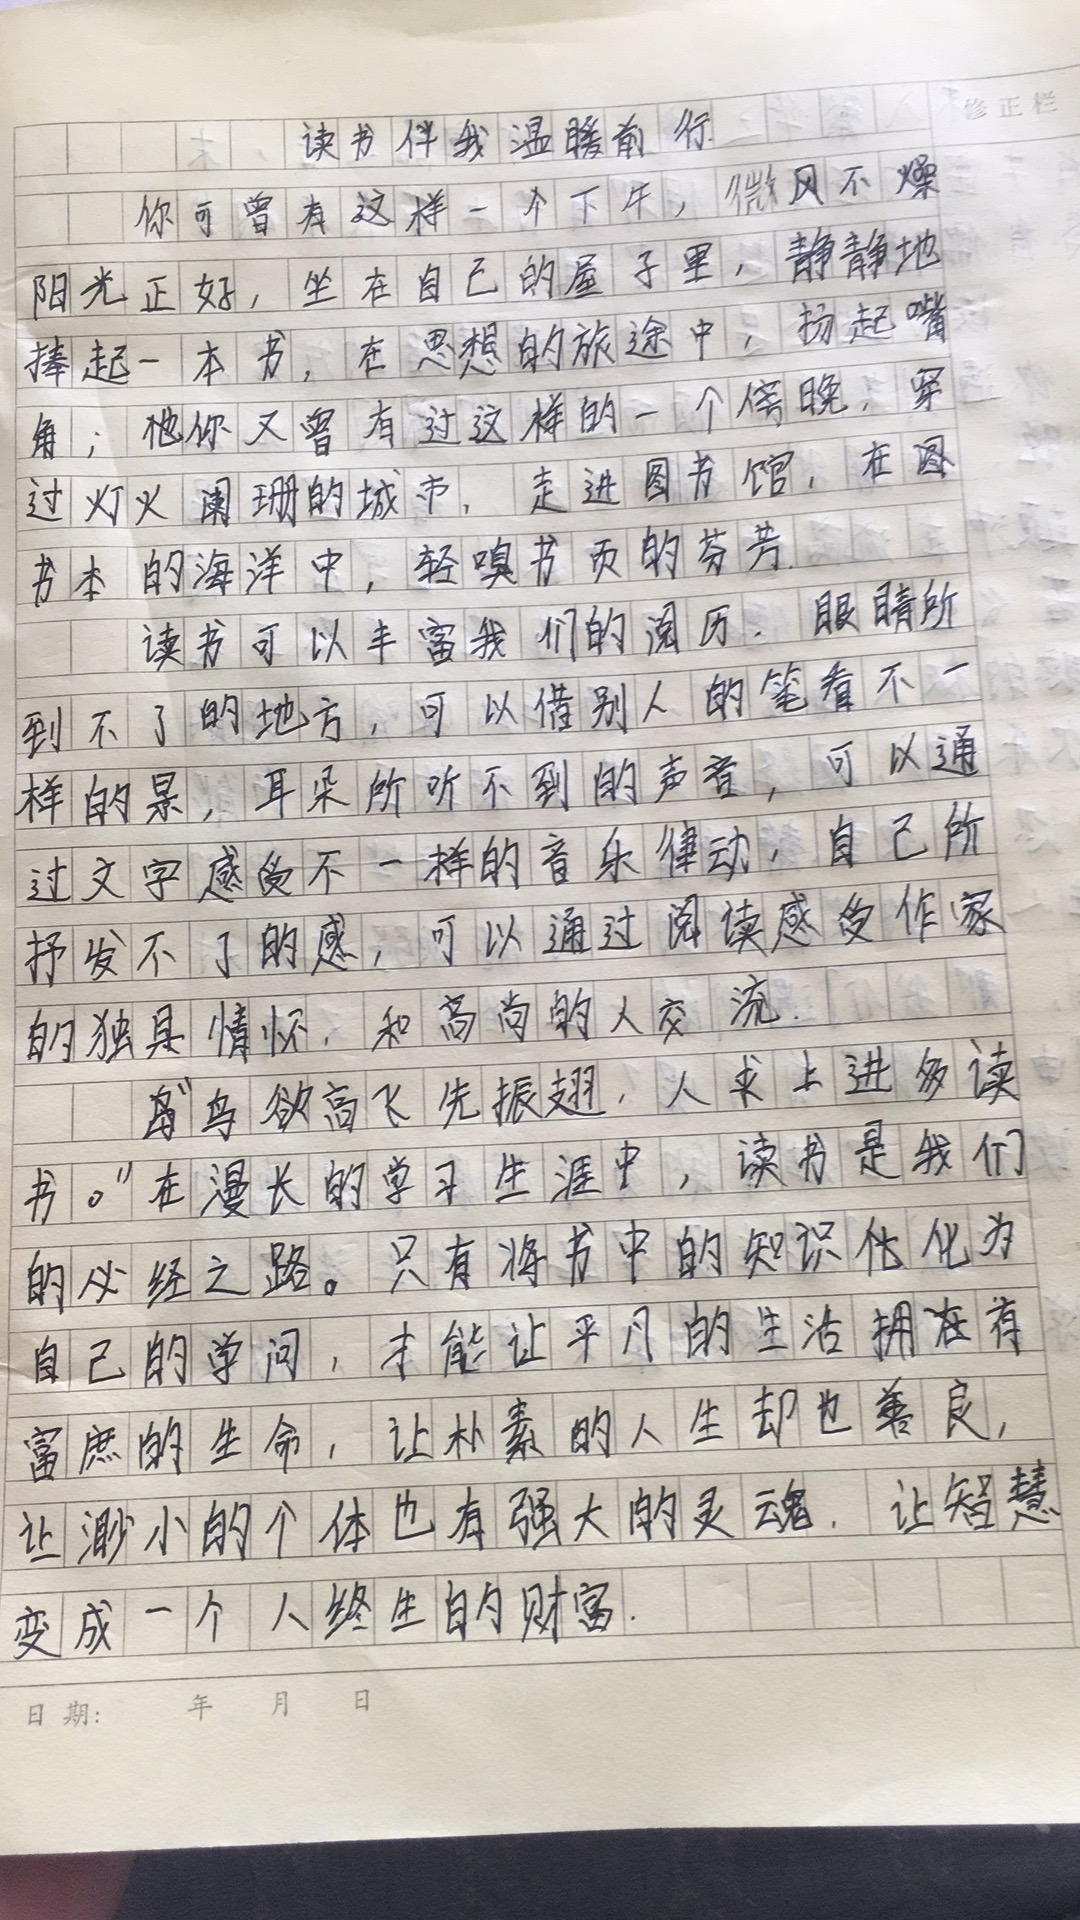 修正栏
读书伴我温暖前行
你可曾有这样一个下午，微风不燥
阳光正好，坐在自己的屋子里，静静地
捧起一本书，在思想的旅途中，扬起嘴
角；他你又曾有过这样的一个傍晚，穿
过灯火阑珊的城市，走进图书馆，在图
书本的海洋中，轻嗅书页的芬芳.
读书可以丰富我们的阅历.眼睛所
到不了的地方，可以借别人的笔看不一
样的景，耳朵所听不到的声音，可以通
过文字感受不一样的音乐律动，自己所
抒发不了的感，可以通过阅读感受作家
的独具情怀，和高尚的人交流.
“鸟欲高飞先振翅，人求上进多读
书。”在漫长的学习生涯中，读书是我们
的必经之路。只有将书中的知识化化为
自己的学问，才能让平凡的生活拥在有
富庶的生命，让朴素的人生却也善良，
让渺小的个体也有强大的灵魂.让智慧
变成一个人终生的财富.
日期：　年　月　日